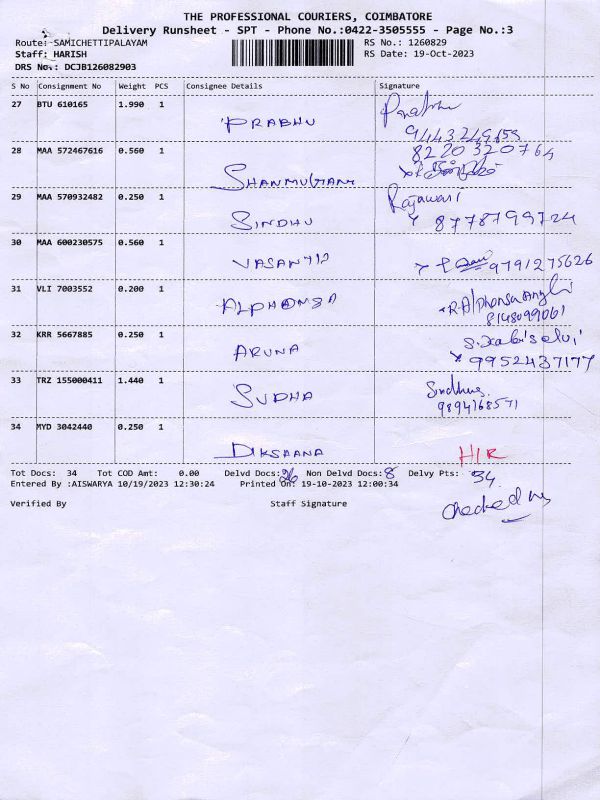 THE PROFESSIONAL COURIERS, COIMBATORE
Delivery Runsheet - SPT - Phone No.:0422-3505555 - Page No.:3
Route: SAMICHETTIPALAYAM RS No.: 1260829
Staff: HARISH RS Date: 19-Oct-2023
DRS No.: DCJB126082903
S No Consignment No Weight PCS Consignee Details Signature
27 BTU 610165 1.990 1
PRABHU
9443249659
28 MAA 572467616 0.560 1 8220320764
SHANMUGAM
29 MAA 570932482 0.250 1 Rajawari
SINDHU 8778799724
30 MAA 600230575 0.560 1
VASANTH 9791275626
31 VLI 7003552 0.200 1
ALPHONSA R.Alphonsa
8148099061
32 KRR 5667885 0.250 1
ARUNA 9952437177
33 TRZ 155000411 1.440 1
SUDHA 9894168571
34 MYD 3042440 0.250 1
DIKSAANA HIR
Tot Docs: 34 Tot COD Amt: 0.00 Delvd Docs: 26 Non Delvd Docs: 8 Delvy Pts: 34
Entered By :AISWARYA 10/19/2023 12:30:24 Printed On: 19-10-2023 12:00:34
Verified By Staff Signature
checked